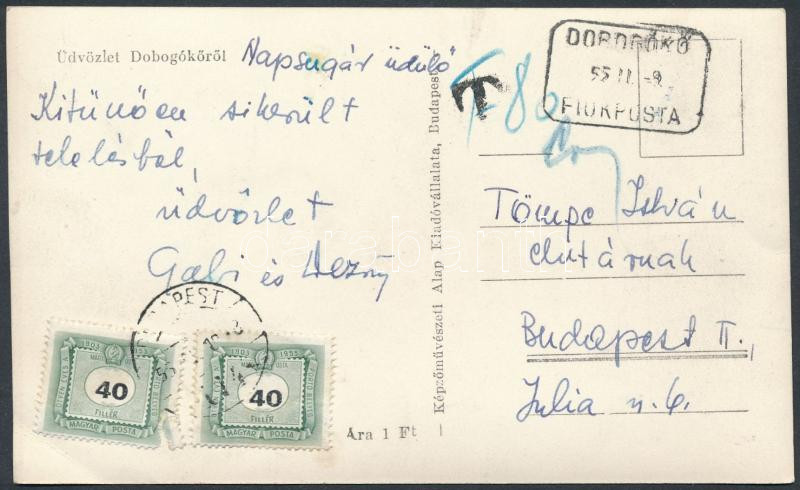 Üdvözlet Dobogókőről Napsugár üdülő
Kitünően sikerült
telelésből,
üdvözlet
Gabi és Dezső
BUDAPEST
1903 1953
40
FILLÉR
MAGYAR POSTA
1903 1953
40
FILLÉR
MAGYAR POSTA
Ára 1 Ft
Képzőművészeti Alap Kiadóvállalata, Budapest
T
T 80
DOBOGÓKŐ
55 II -9
FIÓKPOSTA
Tömpe István
elvtárnak
Budapest II.,
Julia u. 6.
darabanth